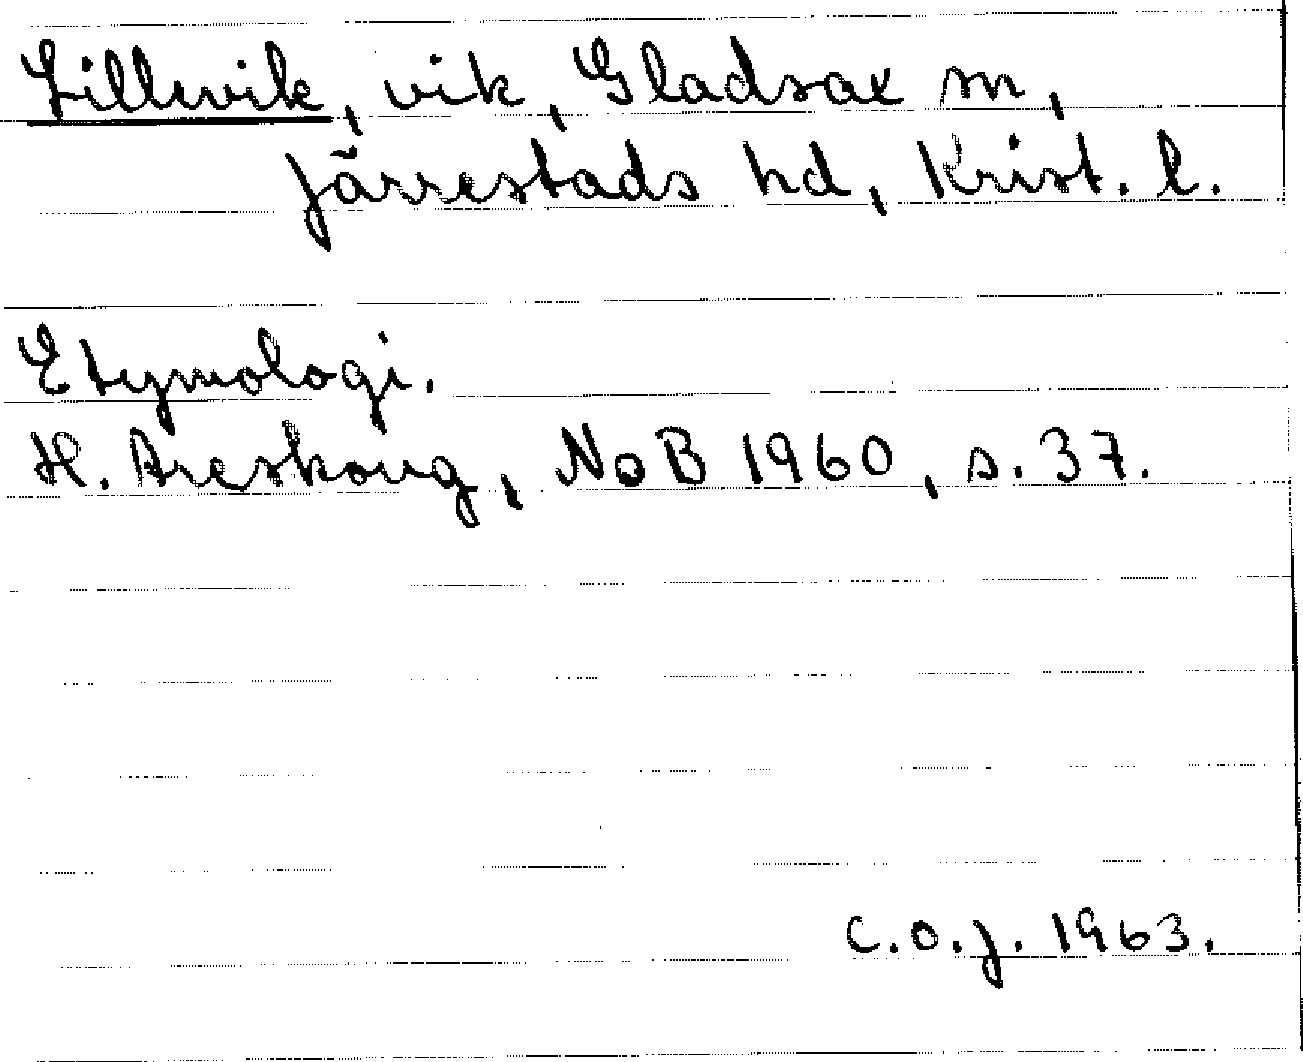 Lillevik, vik, Gladsax sn,
Järrestads hd, Krist. l.
Etymologi.
H. Areskoug, NoB 1960, s. 37.
C.O.J. 1963.